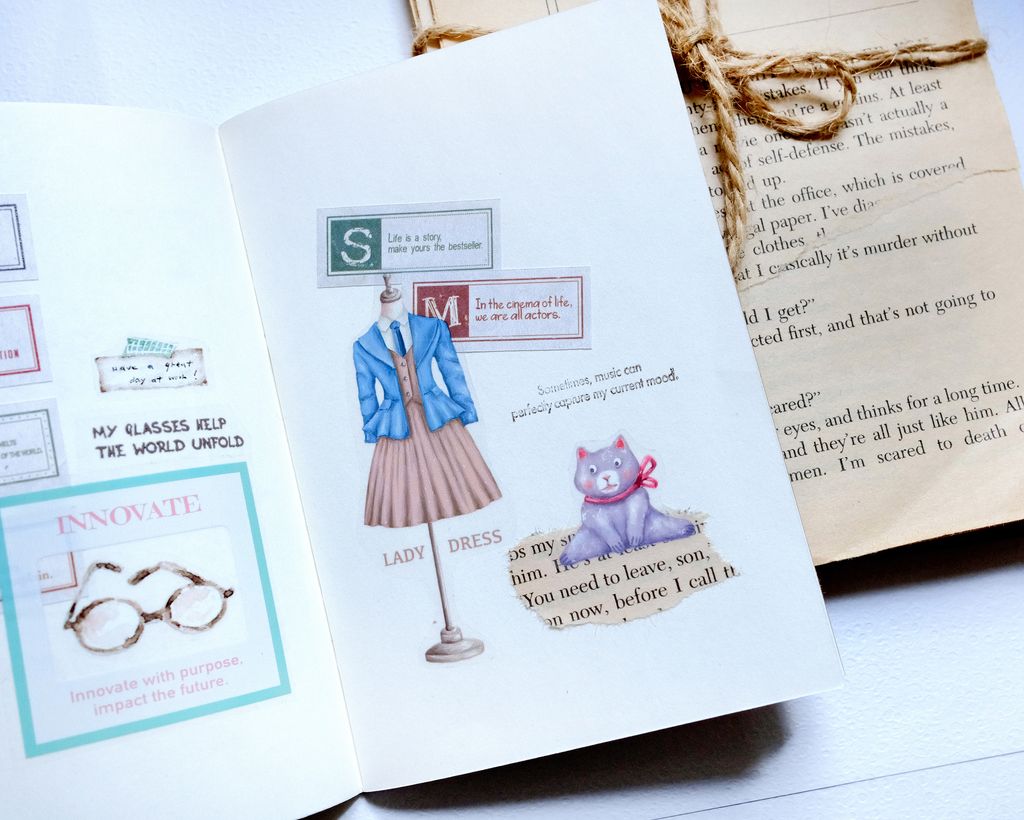 TION
OF THE WORLD.
have a great
day at work!
MY GLASSES HELP
THE WORLD UNFOLD
INNOVATE
in.
Innovate with purpose,
impact the future.
S
Life is a story,
make yours the bestseller.
M
In the cinema of life,
we are all actors.
Sometimes, music can
perfectly capture my current mood!
LADY DRESS
him. He's at least
You need to leave, son,
on now, before I call th
stakes. If you can think
you're a genius. At least
isn't actually a
of self-defense. The mistakes,
up.
at the office, which is covered
gal paper. I've
clothes
at I casically it's murder without
ld I get?"
cted first, and that's not going to
cared?"
eyes, and thinks for a long time.
and they're all just like him. All
men. I'm scared to death